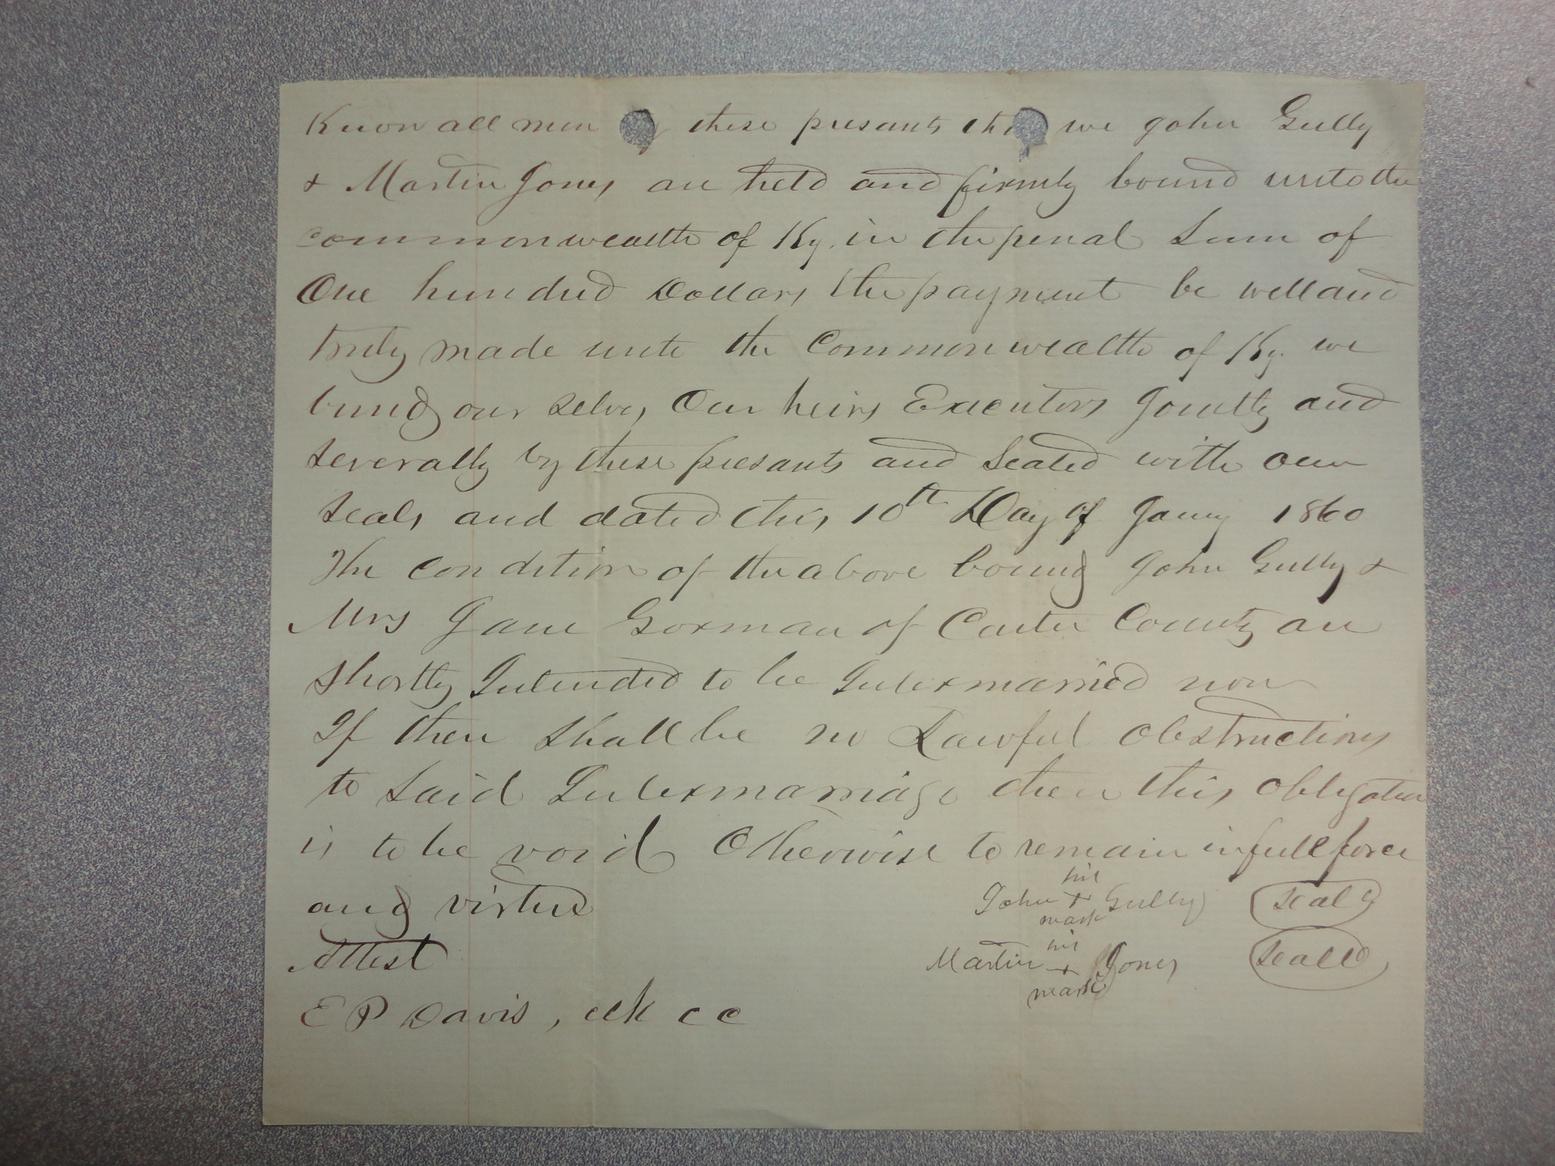 Know all men these presants tha we John Gully
& Martin Jones are held and firmly bound unto the
commonwealth of Ky. in the penal Sum of
One hundred Dollars the payment be well and
truly made unto the Commonwealth of Ky. we
bind our selves Our heirs Executors Jointly and
Severally by these presants and Sealed with our
Seals and dated this 10th Day of Jany 1860
The condition of the above bound John Gully &
Mrs Jane Gorman of Carter County are
Shortly Intended to be Intermarried now
If there Shall be no Lawful obstructions
to Said Intermarriage then this obligation
is to be void Otherwise to remain in full force
and virtue
his
John + Gully Seal
mark
his
Martin + Jones Seal
mark
Attest
E P Davis, clk c c